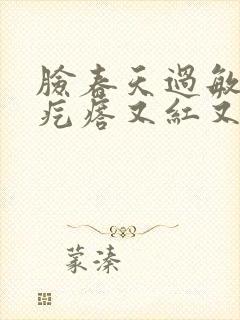 臉春天過敏
疙瘩又紅又
蒙溱